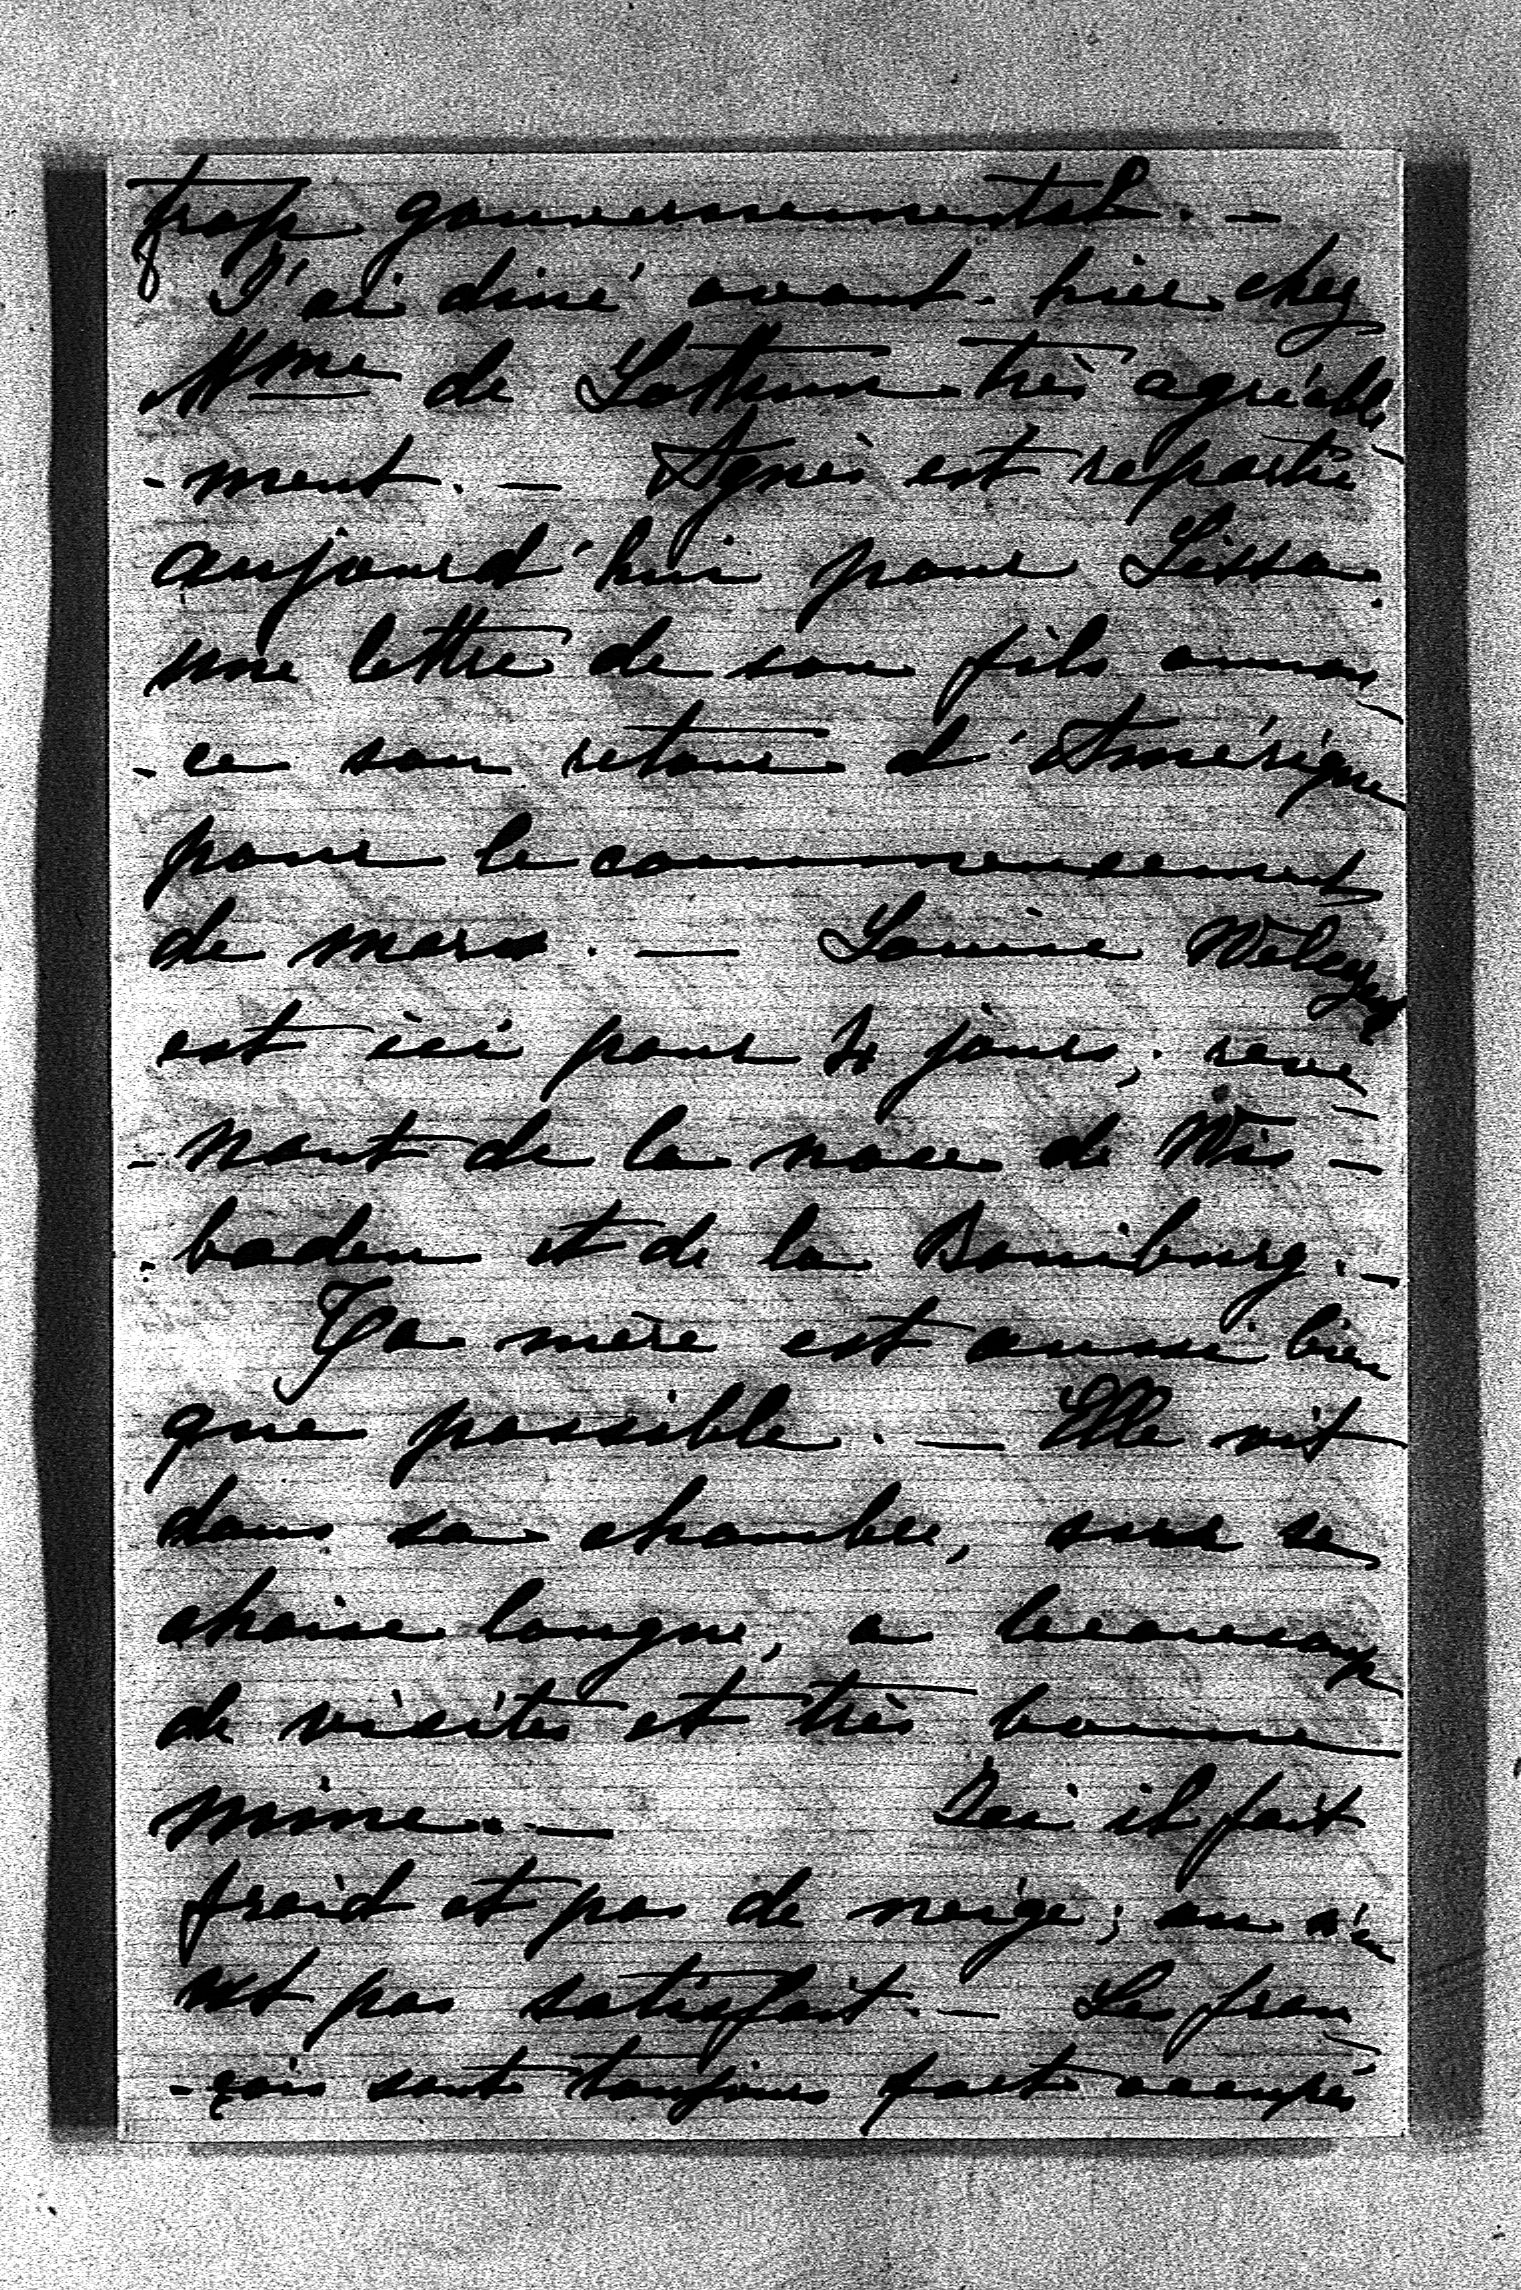 trop gouvernemental. —
J'ai diné avant-hier chez
Mme de Lottum très agréable
-ment. — Agnès est repartie
aujourd'hui pour Lissa.
une lettre de son fils annon
-ce son retour d'Amérique
pour le commencement
de mars. — Louise
est ici pour jours, reve
-nant de la noce de Wis-
-baden et de la . —
Ta mère est aussi bien
que possible. — Elle vit
dans sa chambre, sur sa
chaise longue, a beaucoup
de visites et très bonne
mine. — Ici il fait
froid et pas de neige; on n'en
est pas satisfait. — Les fran
-çais sont toujours fort occupés